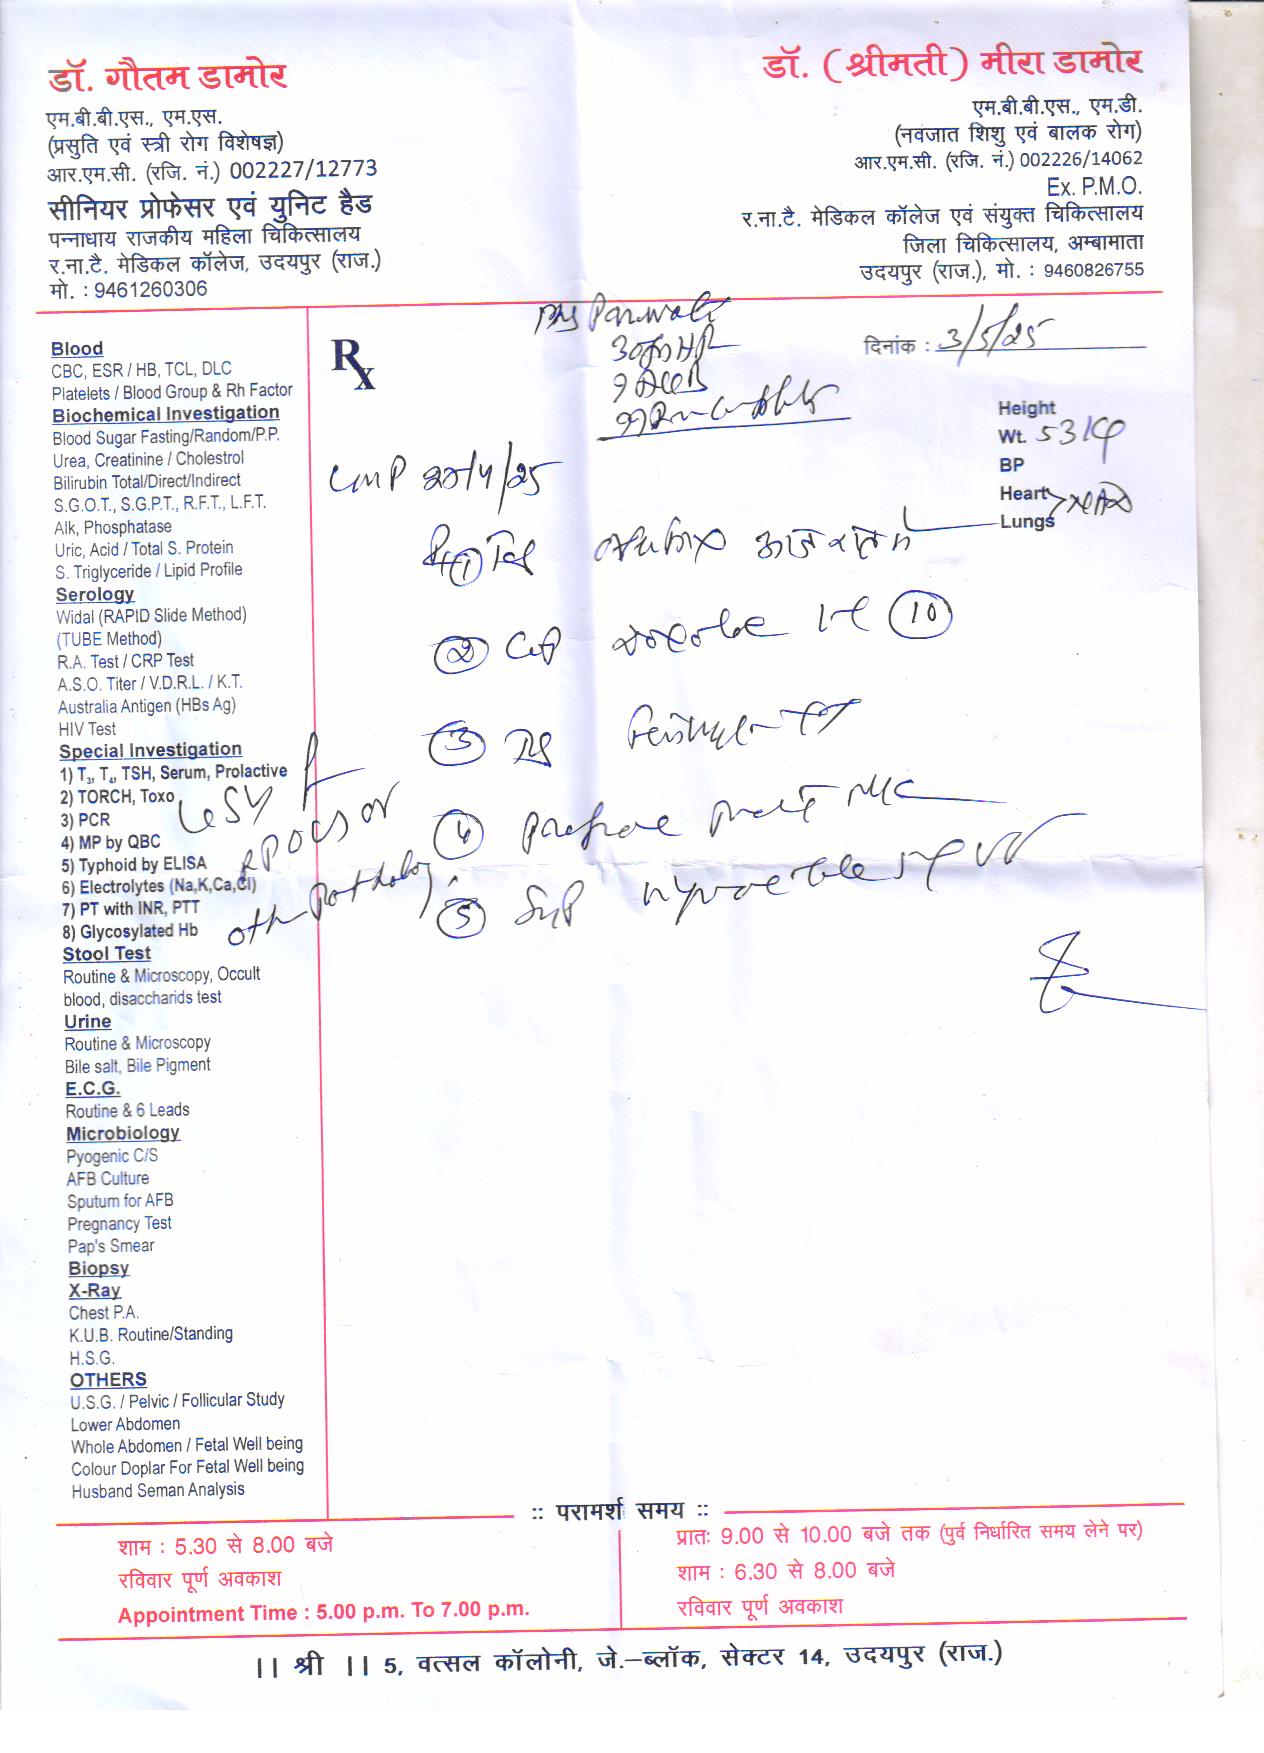 डॉ. गौतम डामोर
एम.बी.बी.एस., एम.एस.
(प्रसुति एवं स्त्री रोग विशेषज्ञ)
आर.एम.सी. (रजि. नं.) 002227/12773
सीनियर प्रोफेसर एवं युनिट हैड
पन्नाधाय राजकीय महिला चिकित्सालय
र.ना.टै. मेडिकल कॉलेज, उदयपुर (राज.)
मो. : 9461260306
डॉ. (श्रीमती) मीरा डामोर
एम.बी.बी.एस., एम.डी.
(नवजात शिशु एवं बालक रोग)
आर.एम.सी. (रजि. नं.) 002226/14062
Ex. P.M.O.
र.ना.टै. मेडिकल कॉलेज एवं संयुक्त चिकित्सालय
जिला चिकित्सालय, अम्बामाता
उदयपुर (राज.), मो. : 9460826755
Parwati
दिनांक : 3/5/25
Rx
Height
Wt. 53
BP
Heart
Lungs
LMP 20/4/25
①
② Cap 10
③
④
⑤ Syp
USG
PCOS or
oth pathology
Blood
CBC, ESR / HB, TCL, DLC
Platelets / Blood Group & Rh Factor
Biochemical Investigation
Blood Sugar Fasting/Random/P.P.
Urea, Creatinine / Cholestrol
Bilirubin Total/Direct/Indirect
S.G.O.T., S.G.P.T., R.F.T., L.F.T.
Alk, Phosphatase
Uric, Acid / Total S. Protein
S. Triglyceride / Lipid Profile
Serology
Widal (RAPID Slide Method)
(TUBE Method)
R.A. Test / CRP Test
A.S.O. Titer / V.D.R.L. / K.T.
Australia Antigen (HBs Ag)
HIV Test
Special Investigation
1) T₃, T₄, TSH, Serum, Prolactive
2) TORCH, Toxo
3) PCR
4) MP by QBC
5) Typhoid by ELISA
6) Electrolytes (Na,K,Ca,Cl)
7) PT with INR, PTT
8) Glycosylated Hb
Stool Test
Routine & Microscopy, Occult
blood, disaccharids test
Urine
Routine & Microscopy
Bile salt, Bile Pigment
E.C.G.
Routine & 6 Leads
Microbiology
Pyogenic C/S
AFB Culture
Sputum for AFB
Pregnancy Test
Pap's Smear
Biopsy
X-Ray
Chest P.A.
K.U.B. Routine/Standing
H.S.G.
OTHERS
U.S.G. / Pelvic / Follicular Study
Lower Abdomen
Whole Abdomen / Fetal Well being
Colour Doplar For Fetal Well being
Husband Seman Analysis
:: परामर्श समय ::
शाम : 5.30 से 8.00 बजे
रविवार पूर्ण अवकाश
Appointment Time : 5.00 p.m. To 7.00 p.m.
प्रातः 9.00 से 10.00 बजे तक (पुर्व निर्धारित समय लेने पर)
शाम : 6.30 से 8.00 बजे
रविवार पूर्ण अवकाश
|| श्री || 5, वत्सल कॉलोनी, जे.–ब्लॉक, सेक्टर 14, उदयपुर (राज.)